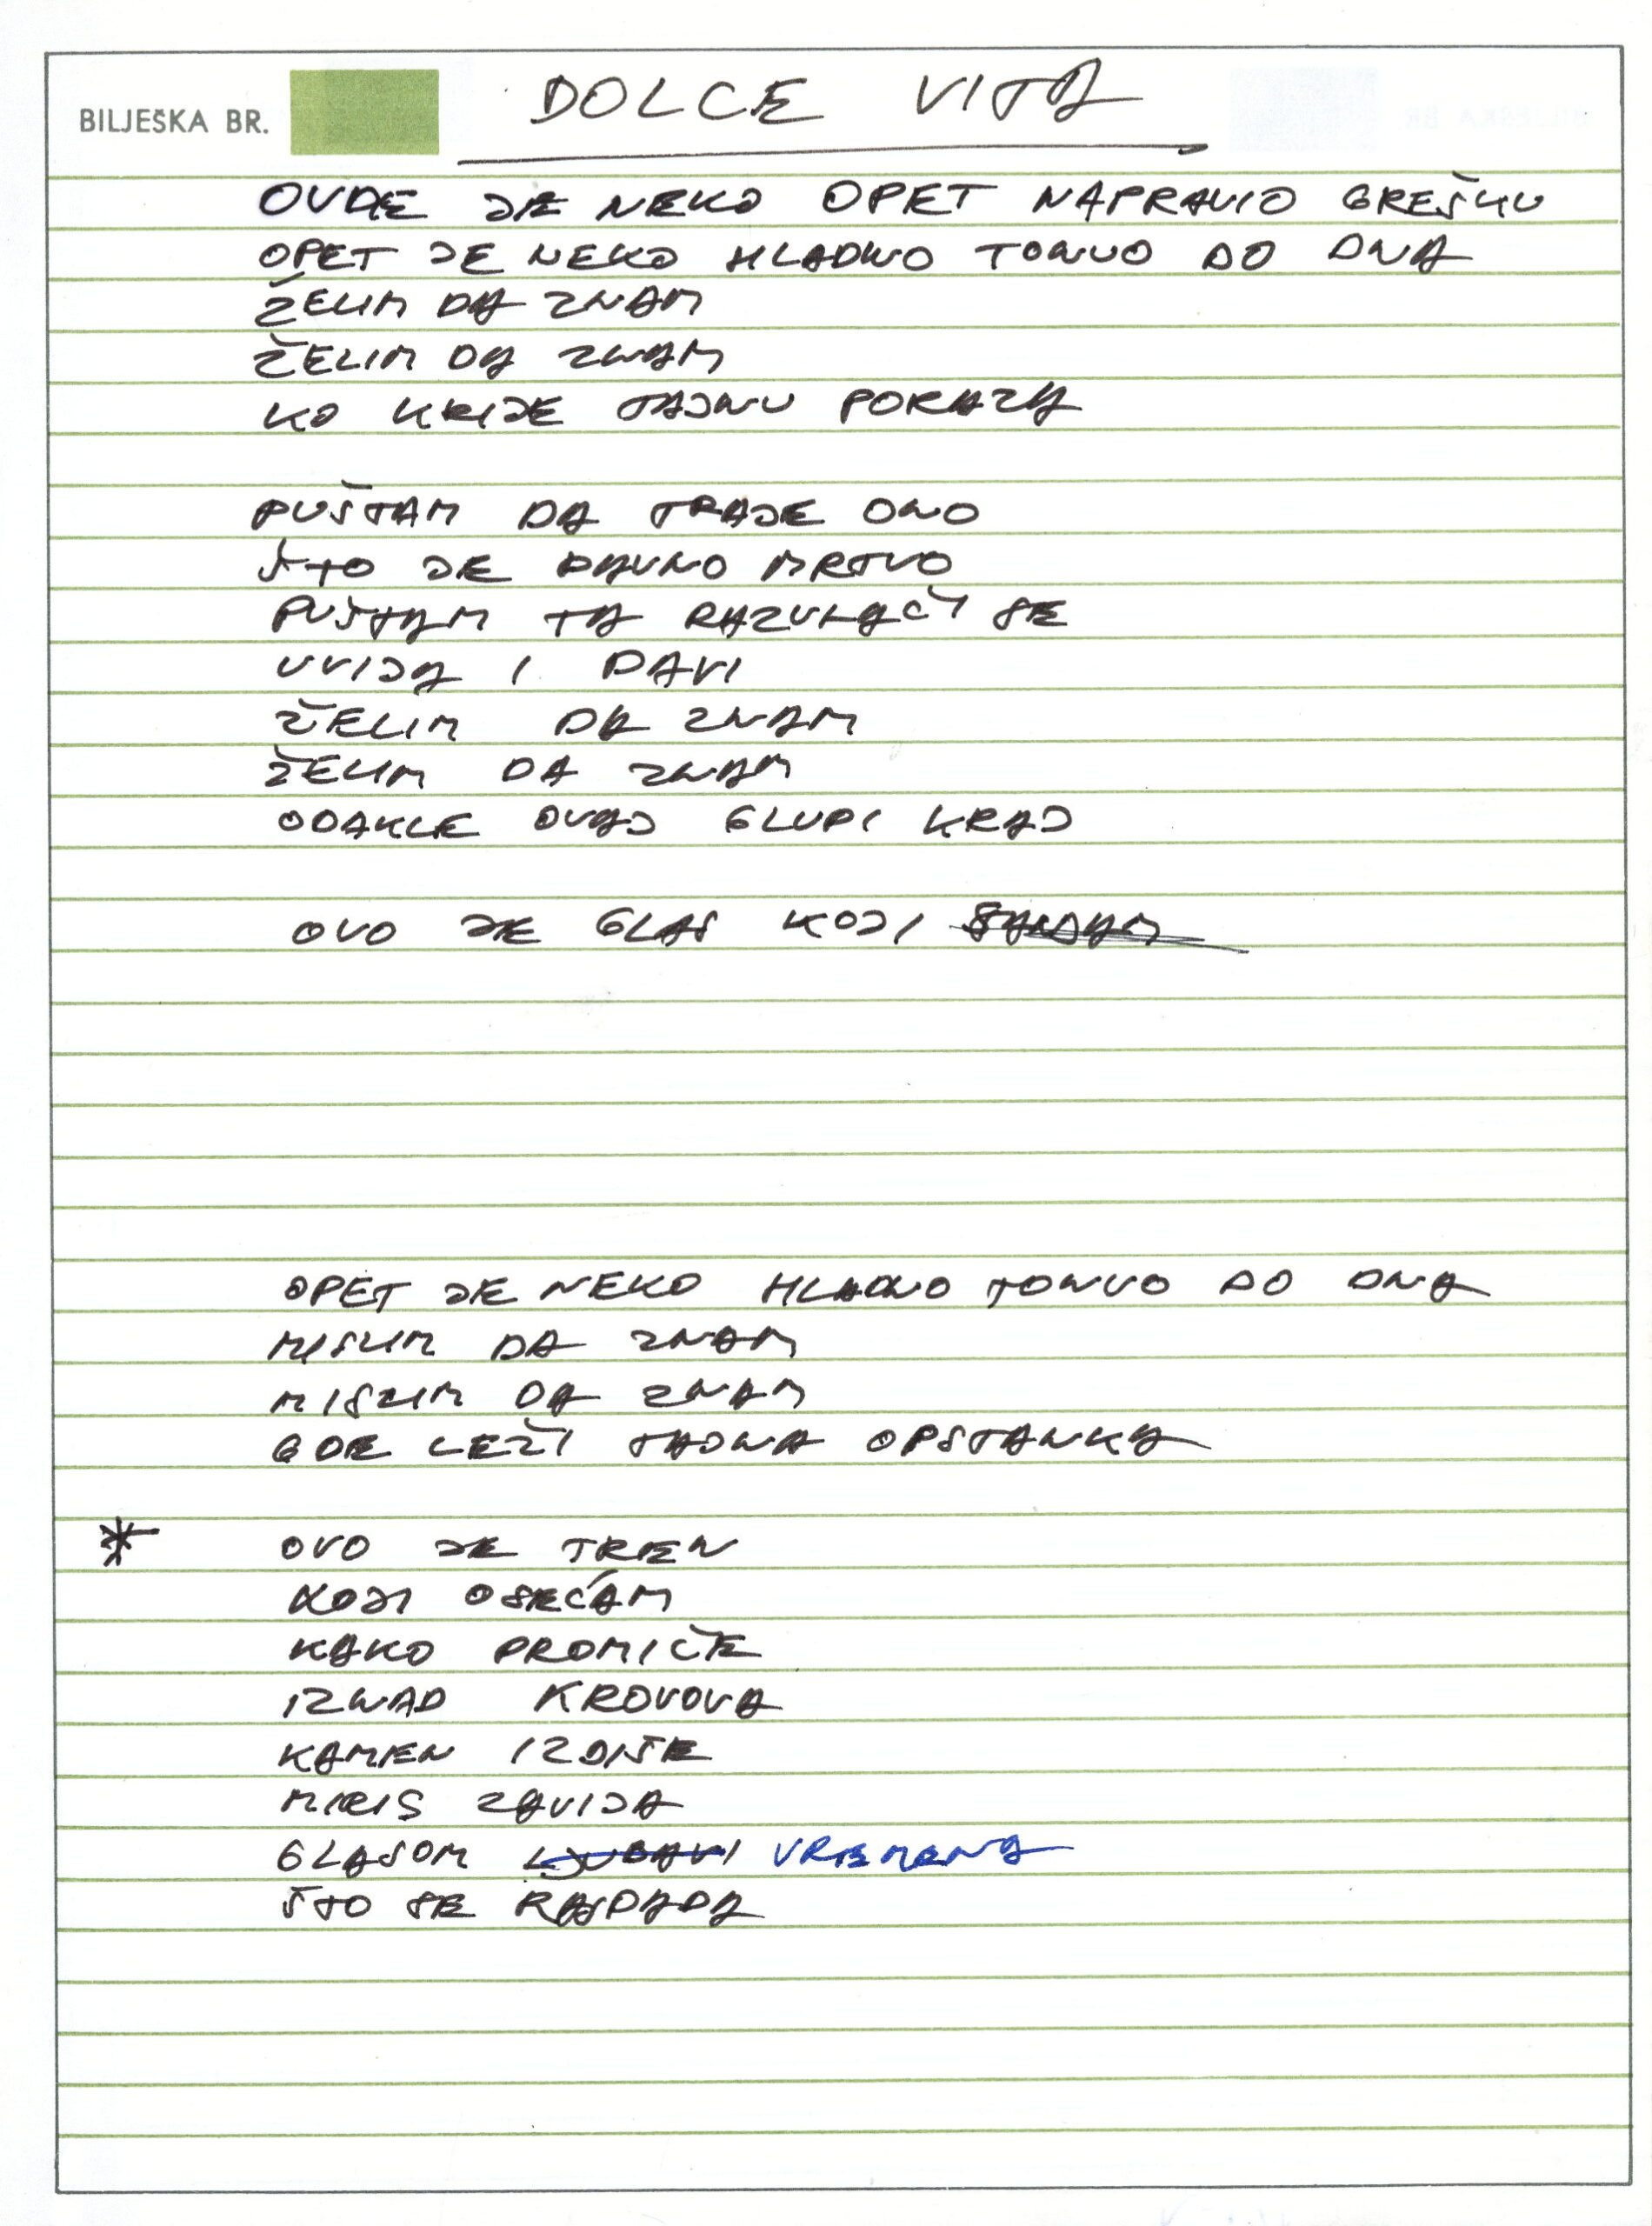 BILJEŠKA BR.
DOLCE VITA
OVDE JE NEKO OPET NAPRAVIO GREŠKU
OPET JE NEKO HLADNO TONUO DO DNA
ŽELIM DA ZNAM
ŽELIM DA ZNAM
KO KRIJE TAJNU PORAZA
PUŠTAM DA TRAJE ONO
ŠTO JE DAVNO MRTVO
PUŠTAM TA RAZVLAČI SE
UVIJA I DAVI
ŽELIM DA ZNAM
ŽELIM DA ZNAM
ODAKLE OVAJ GLUPI KRAJ
OVO JE GLAS KOJI
OPET JE NEKO HLADNO TONUO DO DNA
MISLIM DA ZNAM
MISLIM DA ZNAM
GDE LEŽI TAJNA OPSTANKA
* OVO JE TREN
KOJI OSEĆAM
KAKO PROMIČE
IZNAD KROVOVA
KAMEN IZDIŠE
MIRIS ZAVIJA
GLASOM LJUBAVI VREMENA
ŠTO SE RASPADA